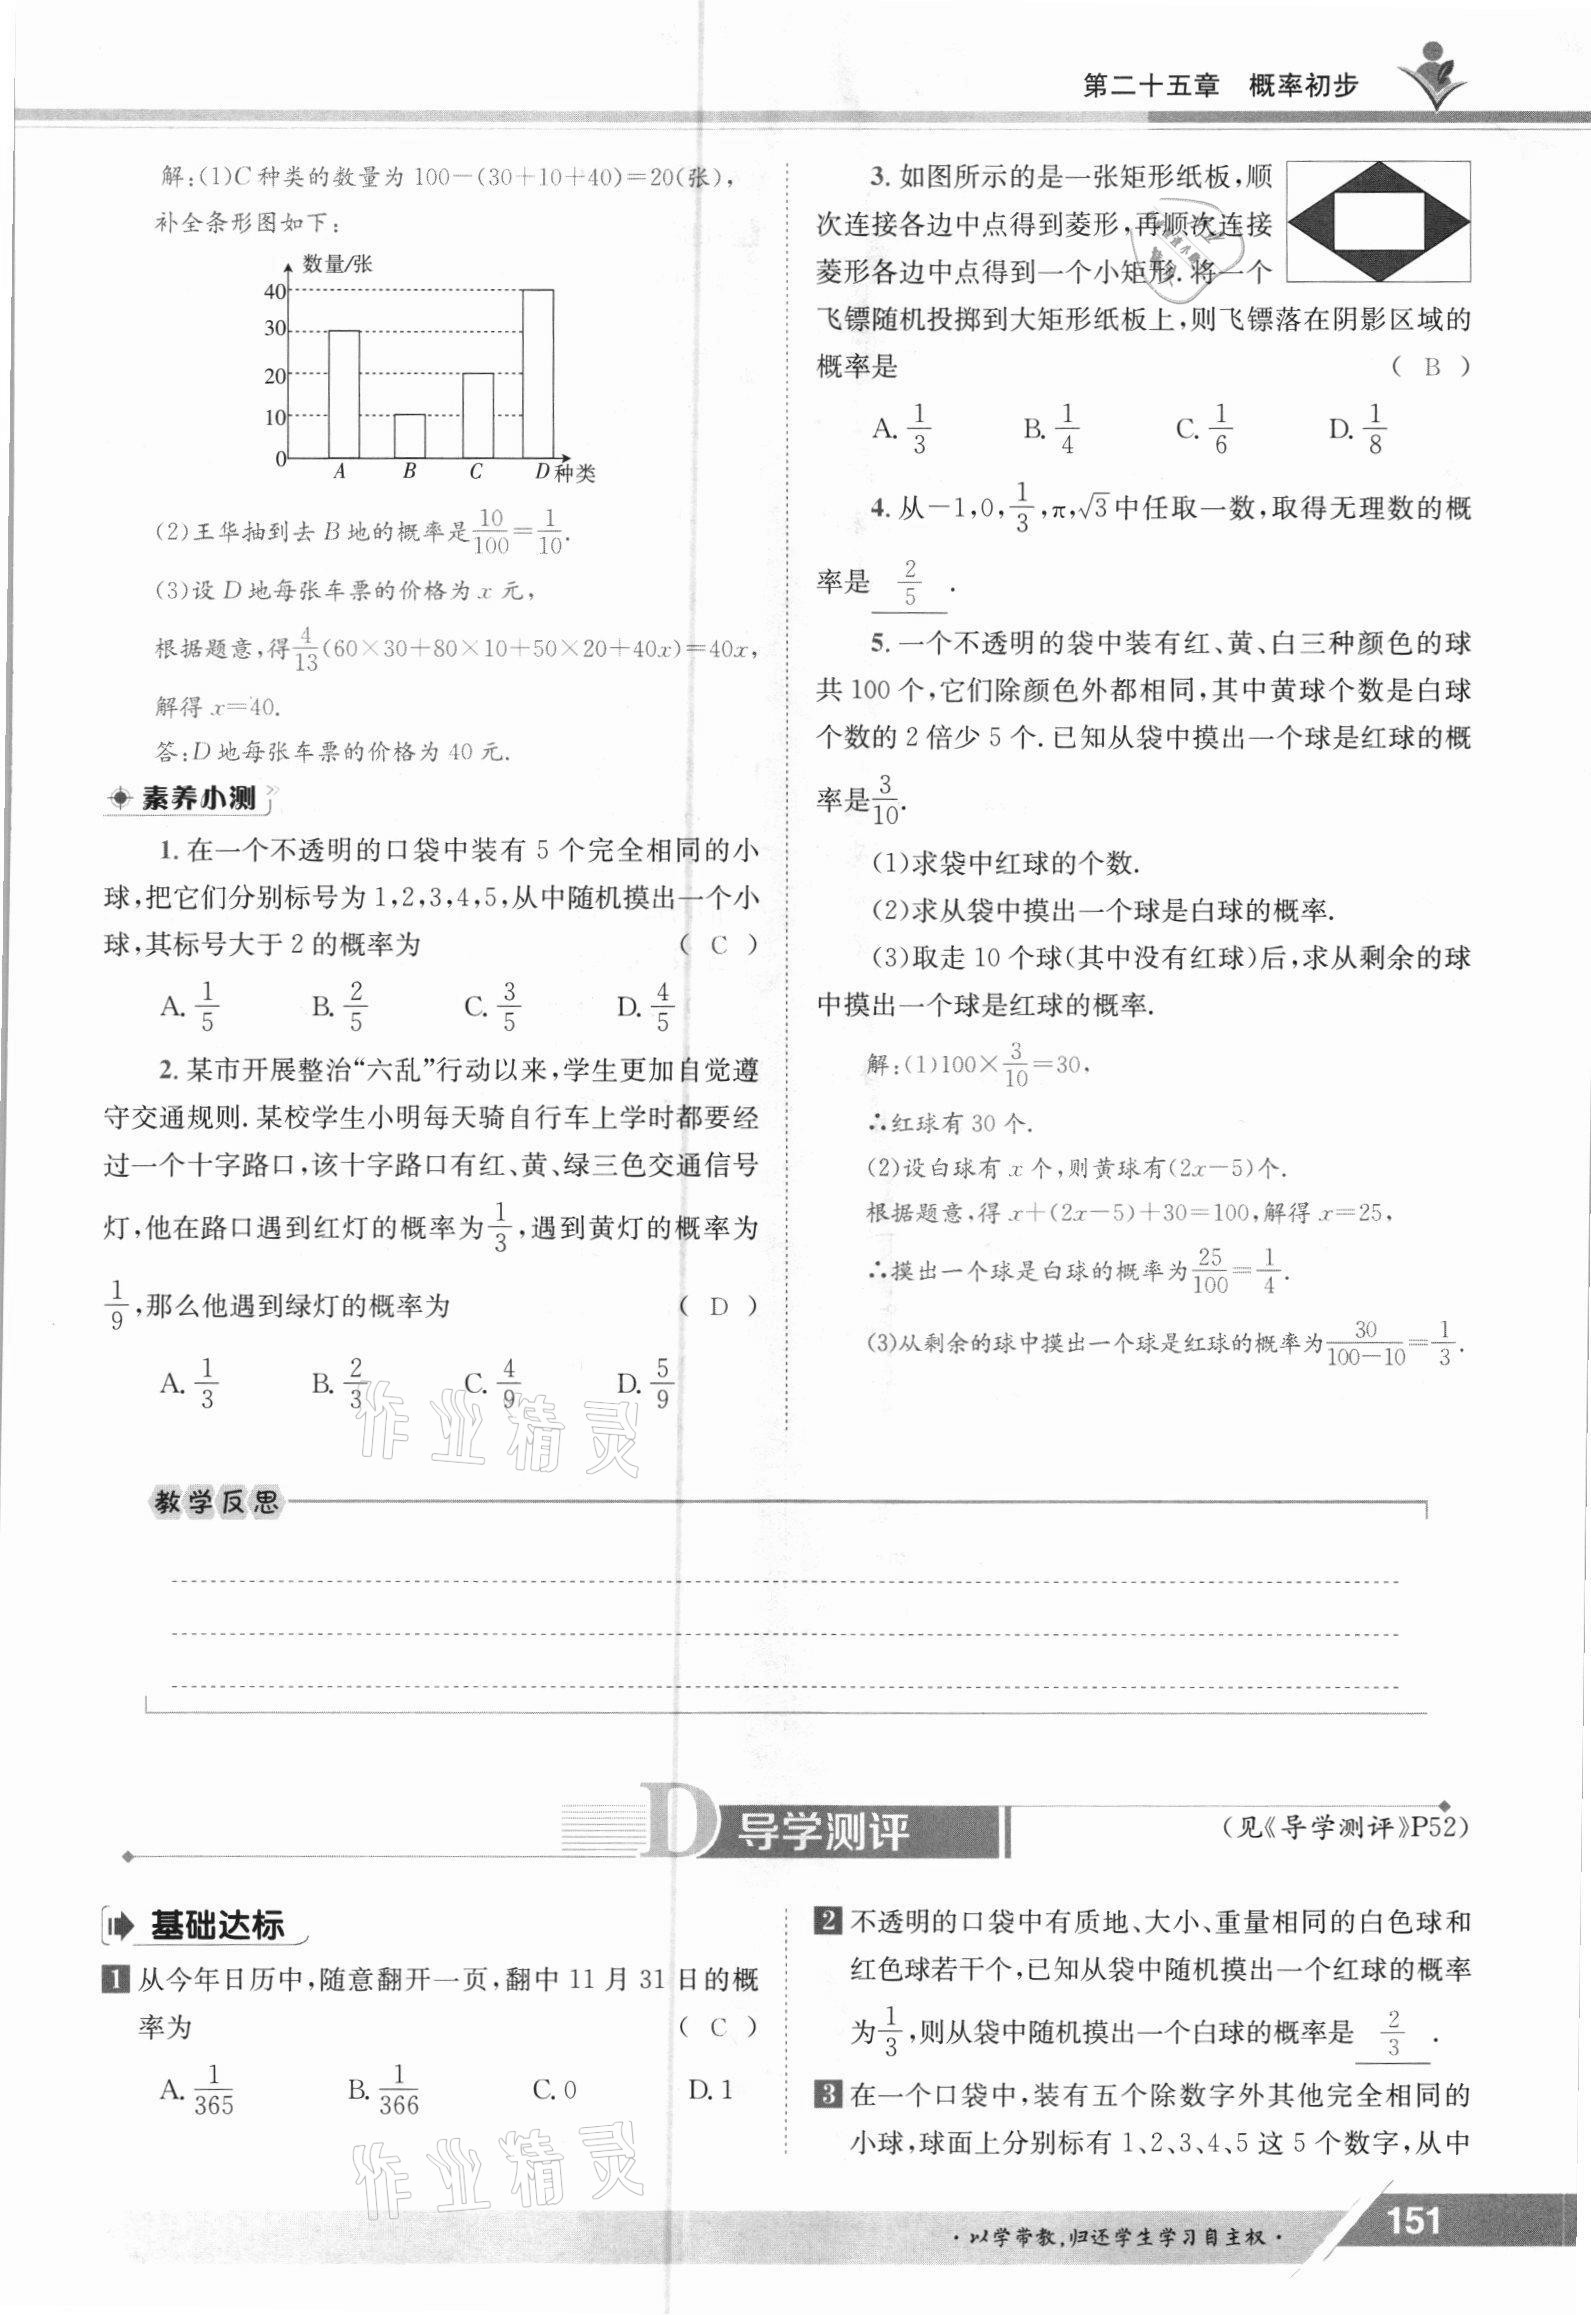 第二十五章 概率初步
解:(1)C种类的数量为100-(30+10+40)=20(张),
补全条形图如下:
数量/张
40
30
20
10
0
A B C D 种类
(2)王华抽到去B地的概率是10/100=1/10.
(3)设D地每张车票的价格为x元,
根据题意,得4/13(60×30+80×10+50×20+40x)=40x,
解得x=40.
答:D地每张车票的价格为40元.
素养小测
1. 在一个不透明的口袋中装有5个完全相同的小
球,把它们分别标号为1,2,3,4,5,从中随机摸出一个小
球,其标号大于2的概率为 ( C )
A. 1/5 B. 2/5 C. 3/5 D. 4/5
2. 某市开展整治“六乱”行动以来,学生更加自觉遵
守交通规则. 某校学生小明每天骑自行车上学时都要经
过一个十字路口,该十字路口有红、黄、绿三色交通信号
灯,他在路口遇到红灯的概率为1/3,遇到黄灯的概率为
1/9,那么他遇到绿灯的概率为 ( D )
A. 1/3 B. 2/3 C. 4/9 D. 5/9
3. 如图所示的是一张矩形纸板,顺
次连接各边中点得到菱形,再顺次连接
菱形各边中点得到一个小矩形. 将一个
飞镖随机投掷到大矩形纸板上,则飞镖落在阴影区域的
概率是 ( B )
A. 1/3 B. 1/4 C. 1/6 D. 1/8
4. 从-1,0,1/3,π,√3中任取一数,取得无理数的概
率是 2/5 .
5. 一个不透明的袋中装有红、黄、白三种颜色的球
共100个,它们除颜色外都相同,其中黄球个数是白球
个数的2倍少5个. 已知从袋中摸出一个球是红球的概
率是3/10.
(1)求袋中红球的个数.
(2)求从袋中摸出一个球是白球的概率.
(3)取走10个球(其中没有红球)后,求从剩余的球
中摸出一个球是红球的概率.
解:(1)100×3/10=30,
∴红球有30个.
(2)设白球有x个,则黄球有(2x-5)个.
根据题意,得x+(2x-5)+30=100,解得x=25,
∴摸出一个球是白球的概率为25/100=1/4.
(3)从剩余的球中摸出一个球是红球的概率为30/(100-10)=1/3.
作业精灵
教学反思
D 导学测评
(见《导学测评》P52)
基础达标
1 从今年日历中,随意翻开一页,翻中11月31日的概
率为 ( C )
A. 1/365 B. 1/366 C. 0 D. 1
2 不透明的口袋中有质地、大小、重量相同的白色球和
红色球若干个,已知从袋中随机摸出一个红球的概率
为1/3,则从袋中随机摸出一个白球的概率是 2/3 .
3 在一个口袋中,装有五个除数字外其他完全相同的
小球,球面上分别标有1、2、3、4、5这5个数字,从中
作业精灵
·以学带教,归还学生学习自主权·
151